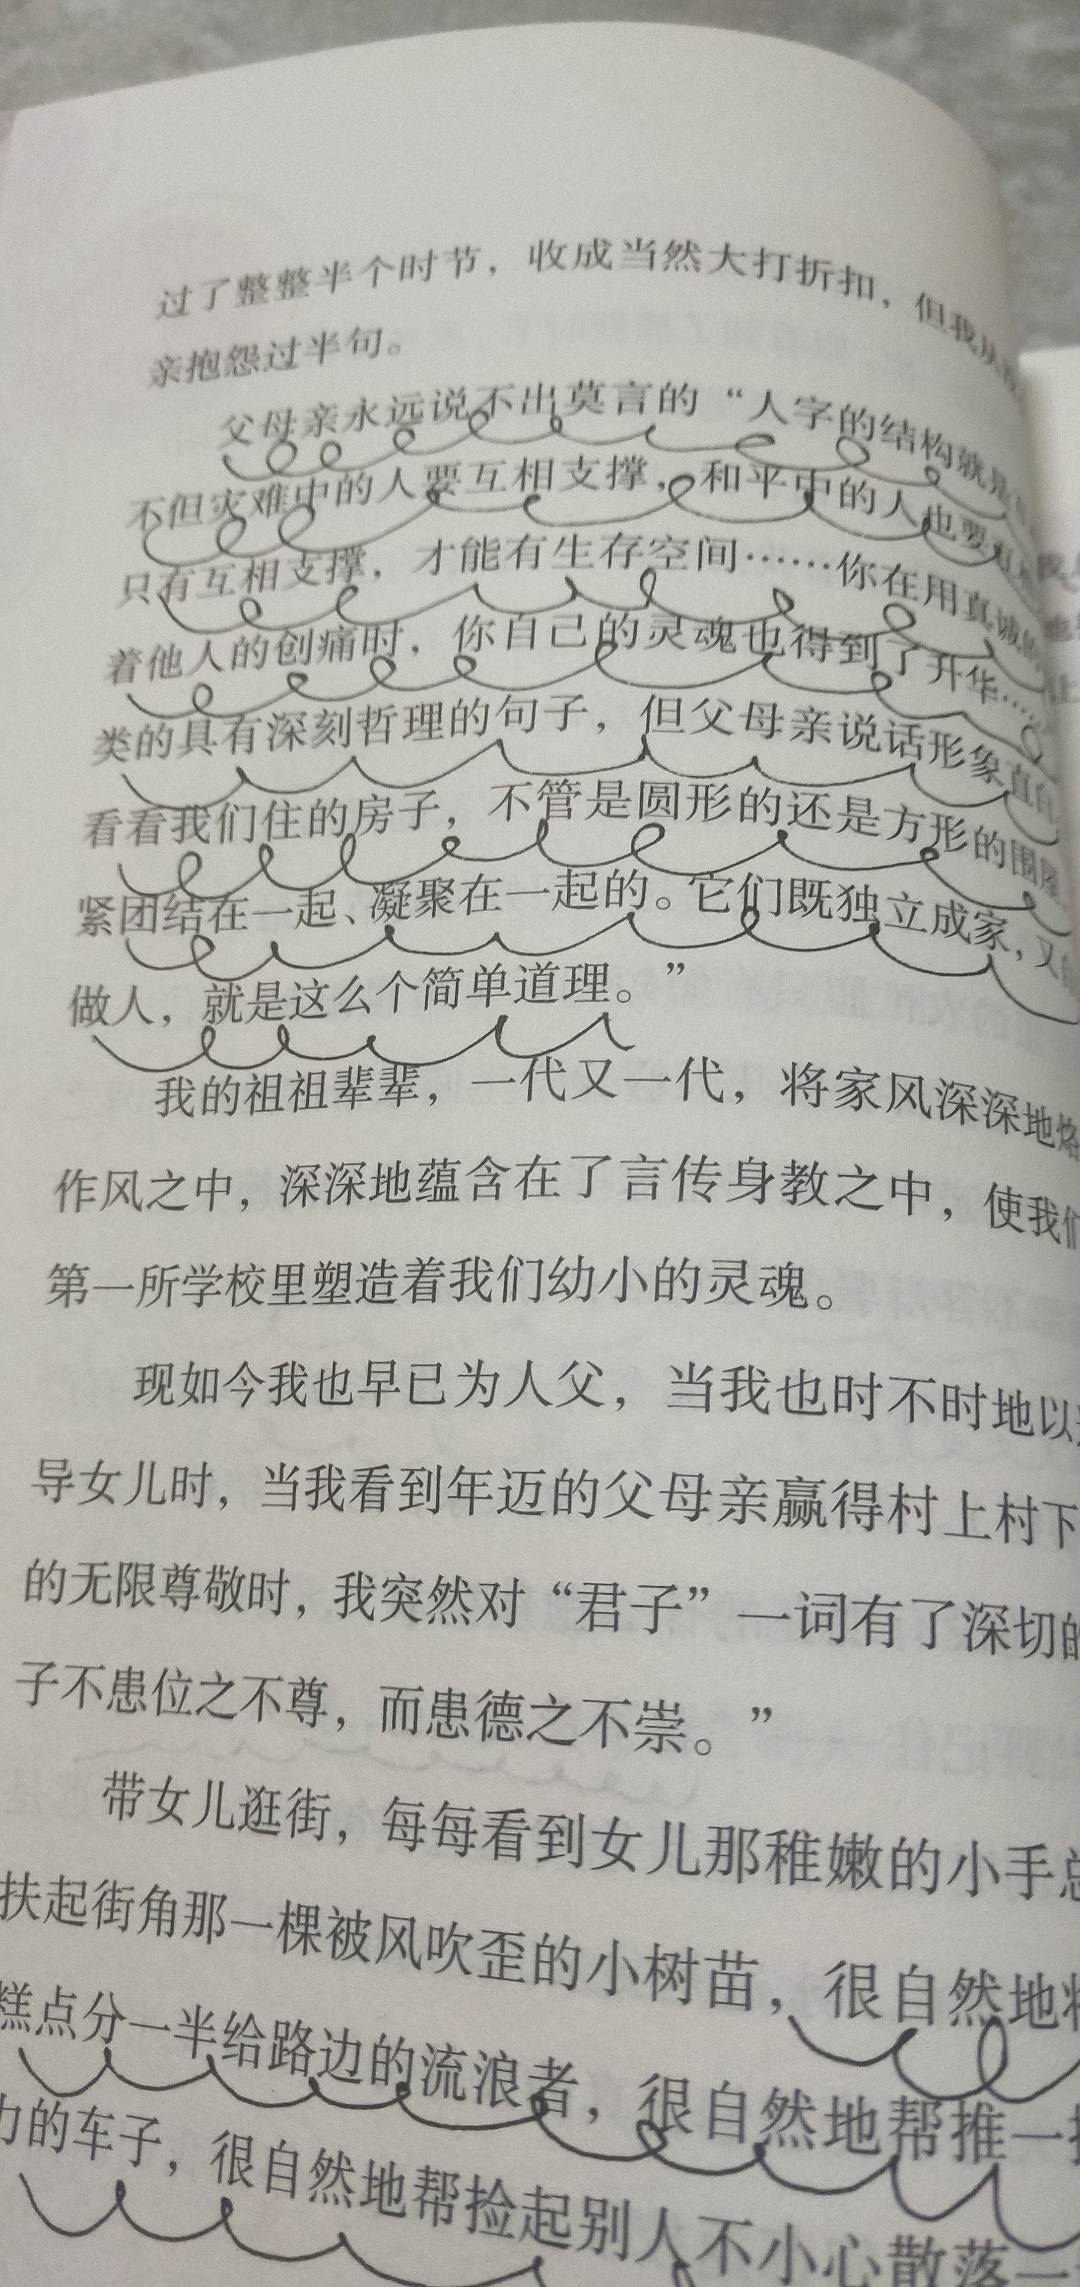 过了整整半个时节，收成当然大打折扣，但我从
亲抱怨过半句。
父母亲永远说不出莫言的“人字的结构就是
不但灾难中的人要互相支撑，和平中的人也要互相
只有互相支撑，才能有生存空间……你在用真诚的
着他人的创痛时，你自己的灵魂也得到了开华……
类的具有深刻哲理的句子，但父母亲说话形象直白
看看我们住的房子，不管是圆形的还是方形的围
紧团结在一起、凝聚在一起的。它们既独立成家，又
做人，就是这么个简单道理。”
我的祖祖辈辈，一代又一代，将家风深深地烙
作风之中，深深地蕴含在了言传身教之中，使我们
第一所学校里塑造着我们幼小的灵魂。
现如今我也早已为人父，当我也时不时地以
导女儿时，当我看到年迈的父母亲赢得村上村下
的无限尊敬时，我突然对“君子”一词有了深切的
子不患位之不尊，而患德之不崇。”
带女儿逛街，每每看到女儿那稚嫩的小手总
扶起街角那一棵被风吹歪的小树苗，很自然地将
糕点分一半给路边的流浪者，很自然地帮推一
力的车子，很自然地帮捡起别人不小心散落一